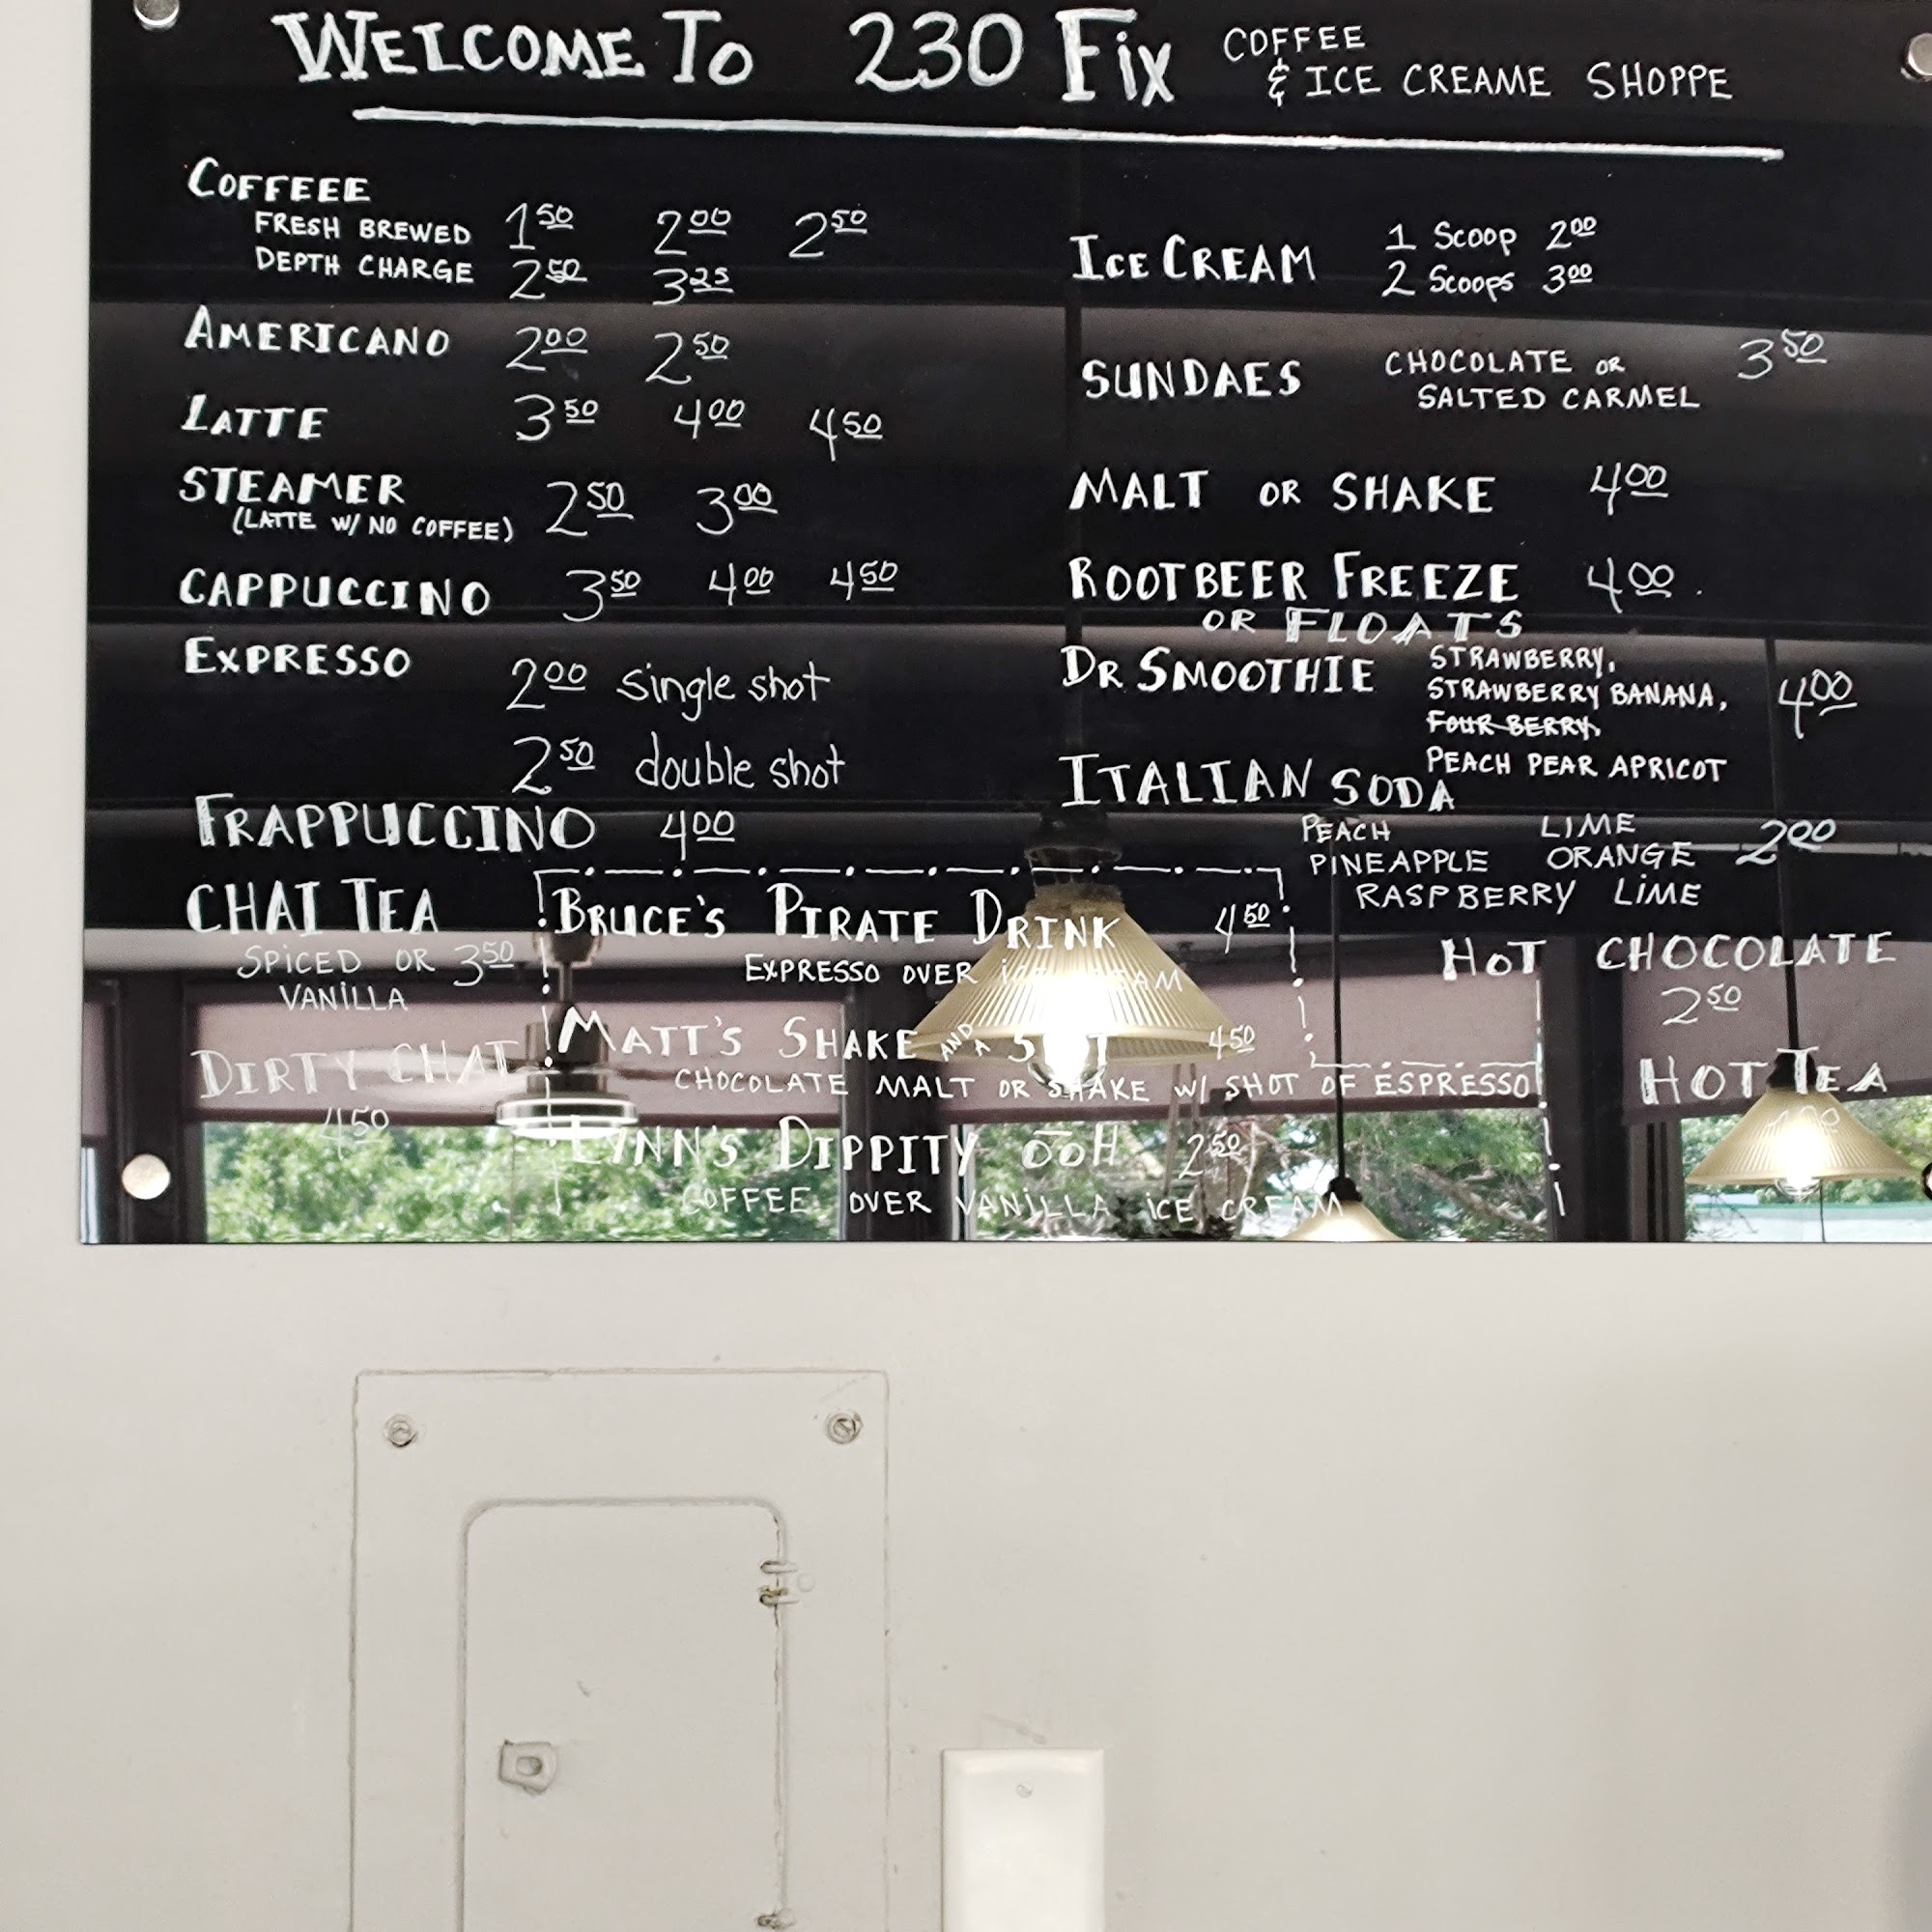 WELCOME TO 230 FIX COFFEE
& ICE CREAME SHOPPE
COFFEEE
FRESH BREWED 1.50 2.00 2.50
DEPTH CHARGE 2.50 3.25
AMERICANO 2.00 2.50
LATTE 3.50 4.00 4.50
STEAMER 2.50 3.00
(LATTE W/ NO COFFEE)
CAPPUCCINO 3.50 4.00 4.50
EXPRESSO
2.00 single shot
2.50 double shot
FRAPPUCCINO 4.00
CHAI TEA
SPICED OR 3.50
VANILLA
DIRTY CHAI
4.50
BRUCE'S PIRATE DRINK 4.50
EXPRESSO OVER ICE CREAM
MATT'S SHAKE AND A 4.50
CHOCOLATE MALT OR SHAKE W/ SHOT OF ESPRESSO
LYNN'S DIPPITY OOH 2.50
COFFEE OVER VANILLA ICE CREAM
ICE CREAM 1 SCOOP 2.00
2 SCOOPS 3.00
SUNDAES CHOCOLATE OR 3.50
SALTED CARMEL
MALT OR SHAKE 4.00
ROOTBEER FREEZE 4.00
OR FLOATS
DR SMOOTHIE STRAWBERRY,
STRAWBERRY BANANA, 4.00
FOUR BERRY,
PEACH PEAR APRICOT
ITALIAN SODA
PEACH LIME
PINEAPPLE ORANGE 2.00
RASPBERRY LIME
HOT CHOCOLATE
2.50
HOT TEA